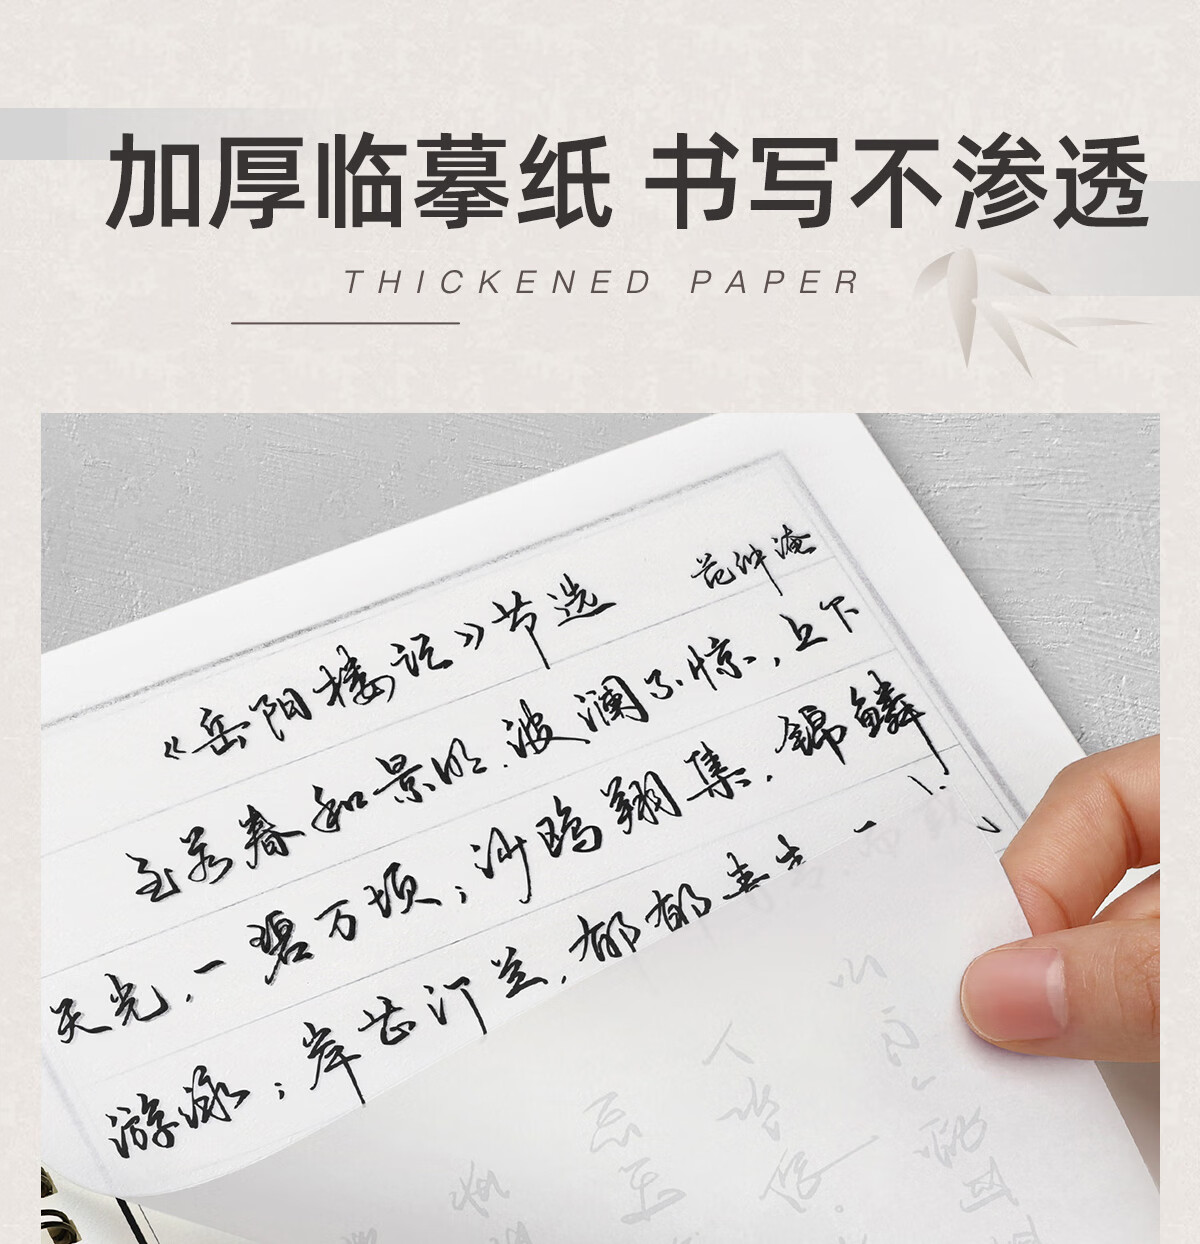 加厚临摹纸 书写不渗透
THICKENED PAPER
《岳阳楼记》节选 范仲淹
至若春和景明,波澜不惊,上下
天光,一碧万顷;沙鸥翔集,锦鳞
游泳;岸芷汀兰,郁郁青青